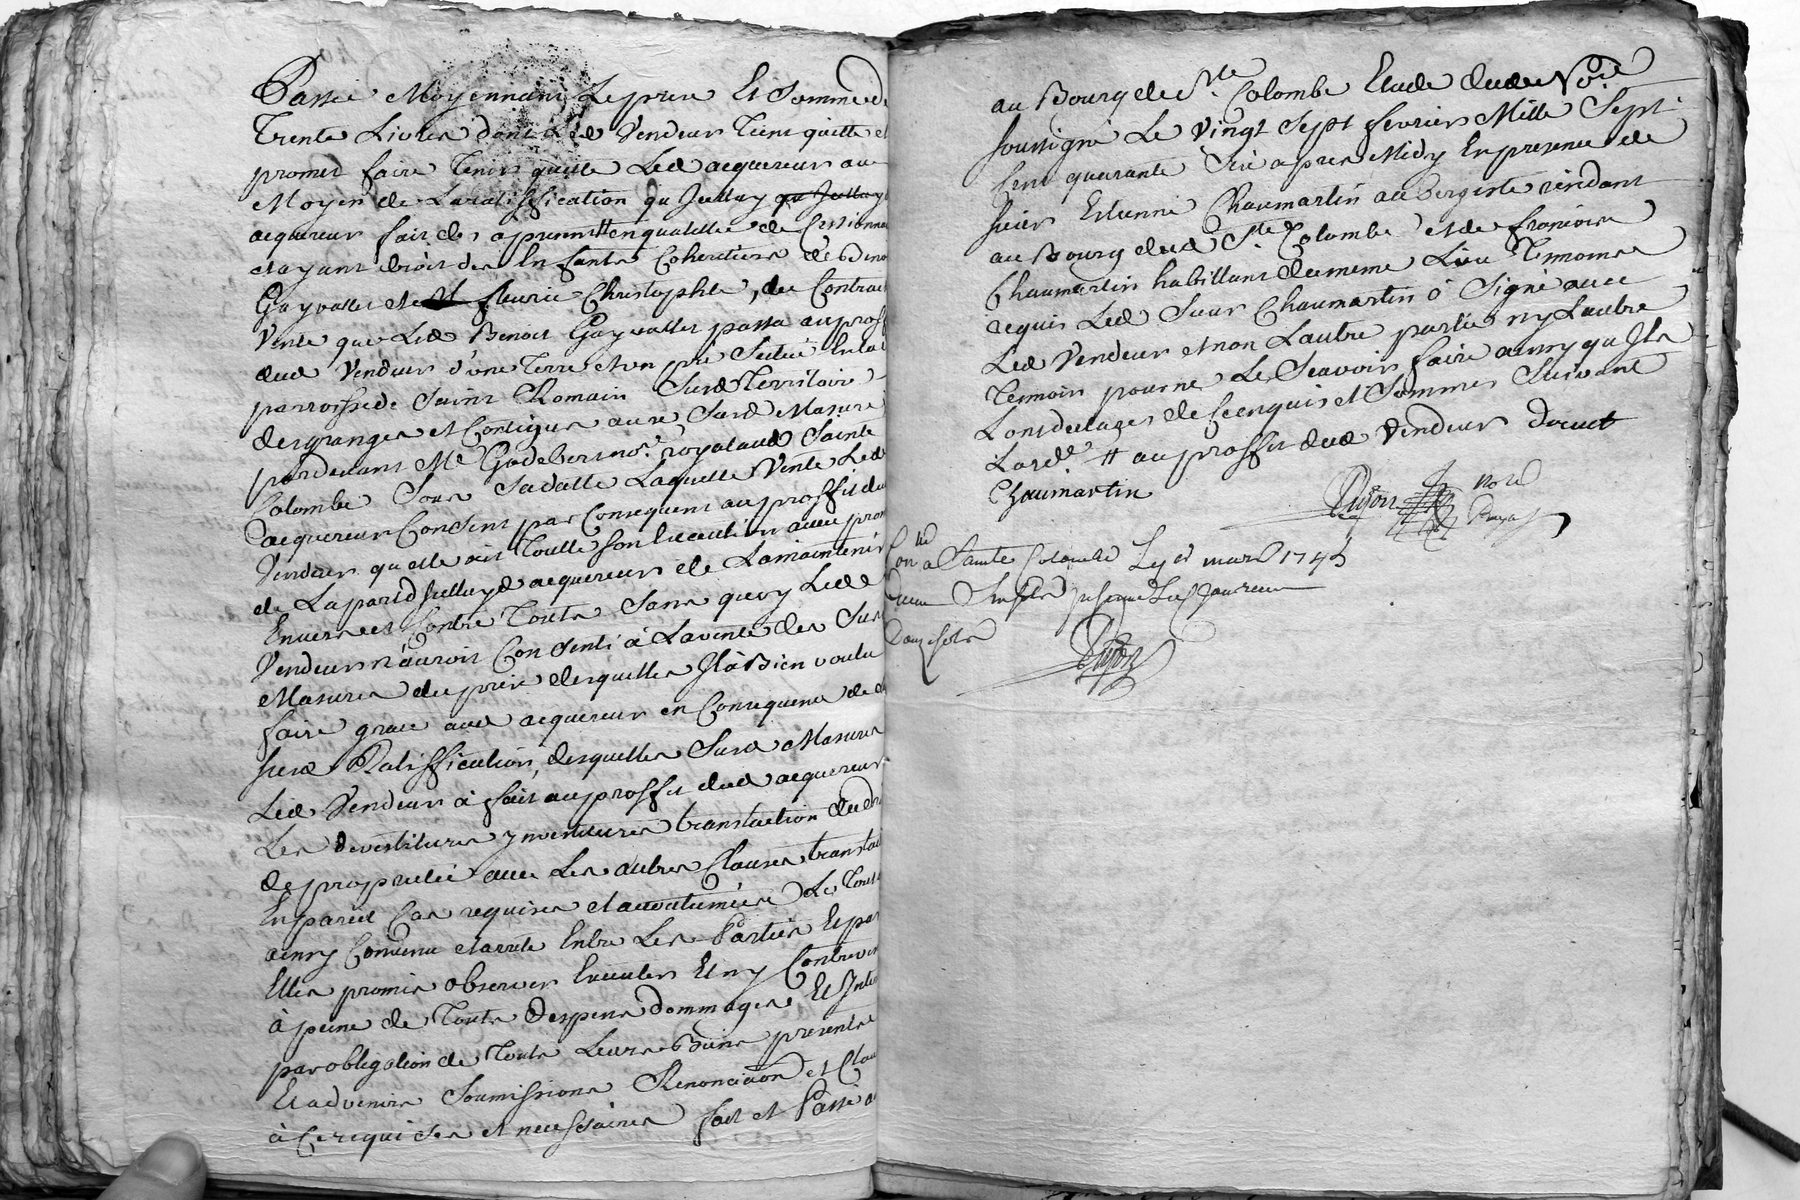 Passé Moyennant Le prix Et Somme de
Trente Livres dont Led Vendeur Tient quitte et
promet faire Tenir quitte Led acquereur au
Moyen de La ratiffication qu Jcelluy qu Jcelluy
acquereur fait des a present # en qualitte de Cessionna
et ayant droit des Enfants Coheritiers de Benoi
Gayvallet et de fleurie Christophle, du Contrac
Vente que Led Benoit Gayvallet passa au proff
dud Vendeur d'une Terre et un pré Scitué En la
parroisse de Saint Romain Susd Territoire
des granges et Contigus aux Susd Masure
pardevant Me Godebert nore royal aud Sainte
Colombe Sous Sa datte Laquelle Vente Led
acquereur Consent par Consequent au proffit du
Vendeur qu elle ait Toutte Son Execution avec prom
de La part d Jcelluyd acquereur de La maintenir
Envers et Contre Touts Sans quoy Led
Vendeur n'auroit Consenti à La vente des Sus
Masures du prix desquelles Jl à Bien voulu
faire grace aud acquereur en Consequence de
Susd Ratiffication, desquelles Susd Masures
Led Vendeur à fait au proffit dud acquereur
Les devestitures ynvestitures translaction du dr
de proprietté avec Les autres Clauses translat
En pareil Cas requises et accoutumées Le Tout
ainsy Convenu et arrete Entre Les Parties Et par
Elles promis observer Executer Et ny Contreven
à peine de Touts Despens dommages Et Inte
par obligation de Touts Leurs Biens presents
Et advenirs Soumissions Renonciaon et Clau
à Ce requises et necessaires fait et Passé a
au Bourg de Ste Colombe Etude dud Nore
soussigné Le Vingt Sept fevrier Mille Sept
Cent quarante Six apres Midy En presence de
sieur Etienne Chaumartin aubergiste residant
au Bourg dud Ste Colombe et de francois
Chaumartin habittant du meme Lieu Temoins
requis Led Sieur Chaumartin ò Signé avec
Led Vendeur et non Lautre partie ny Lautre
Temoin pour ne Le Scavoir faire ainsy qu Jls
L ont de Lages de Ce enquis et Sommés Suivant
Lorde # au proffit dud Vendeur
Chaumartin
Dujon
Nore
Royal
Conlé a Sainte Colombe Le mars 1746
Reçu
Douze sols
Dujon